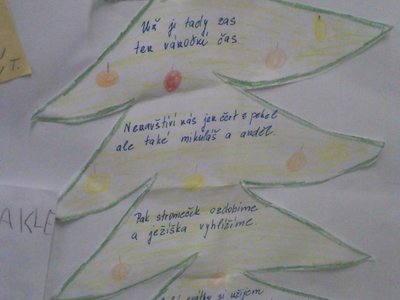 Už je tady zas
ten vánoční čas.
Nenavštíví nás jen čert z pekel
ale také mikuláš a anděl.
Pak stromeček ozdobíme
a ježíška vyhlížíme.
si užijem
T.
AKLE